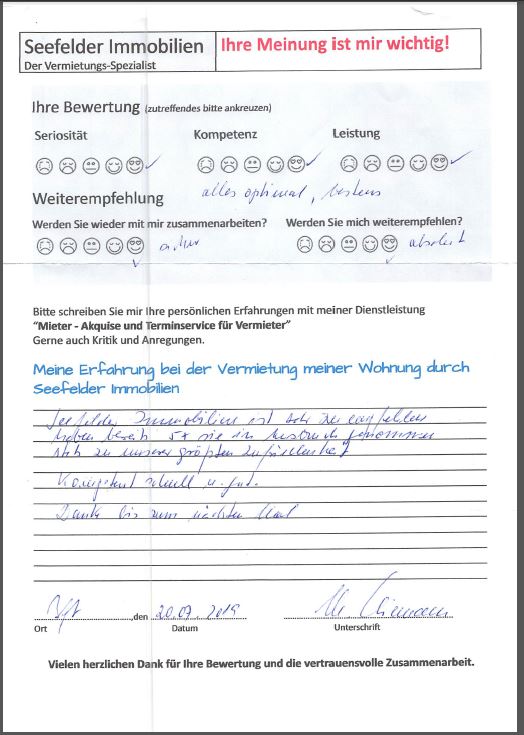 Seefelder Immobilien
Der Vermietungs-Spezialist
Ihre Meinung ist mir wichtig!
Ihre Bewertung (zutreffendes bitte ankreuzen)
Seriosität Kompetenz Leistung
alles optimal, bestens
Weiterempfehlung
Werden Sie wieder mit mir zusammenarbeiten? Werden Sie mich weiterempfehlen?
sicher absolut
Bitte schreiben Sie mir Ihre persönlichen Erfahrungen mit meiner Dienstleistung
"Mieter - Akquise und Terminservice für Vermieter"
Gerne auch Kritik und Anregungen.
Meine Erfahrung bei der Vermietung meiner Wohnung durch
Seefelder Immobilien
Seefelder Immobilien ist sehr zu empfehlen
haben bereits 5x sie in Anspruch genommen
stets zu unserer größten Zufriedenheit
Kompetent schnell u. gut.
Danke bis zum nächsten Mal
,den 20.07.2019
Ort Datum Unterschrift
Vielen herzlichen Dank für Ihre Bewertung und die vertrauensvolle Zusammenarbeit.